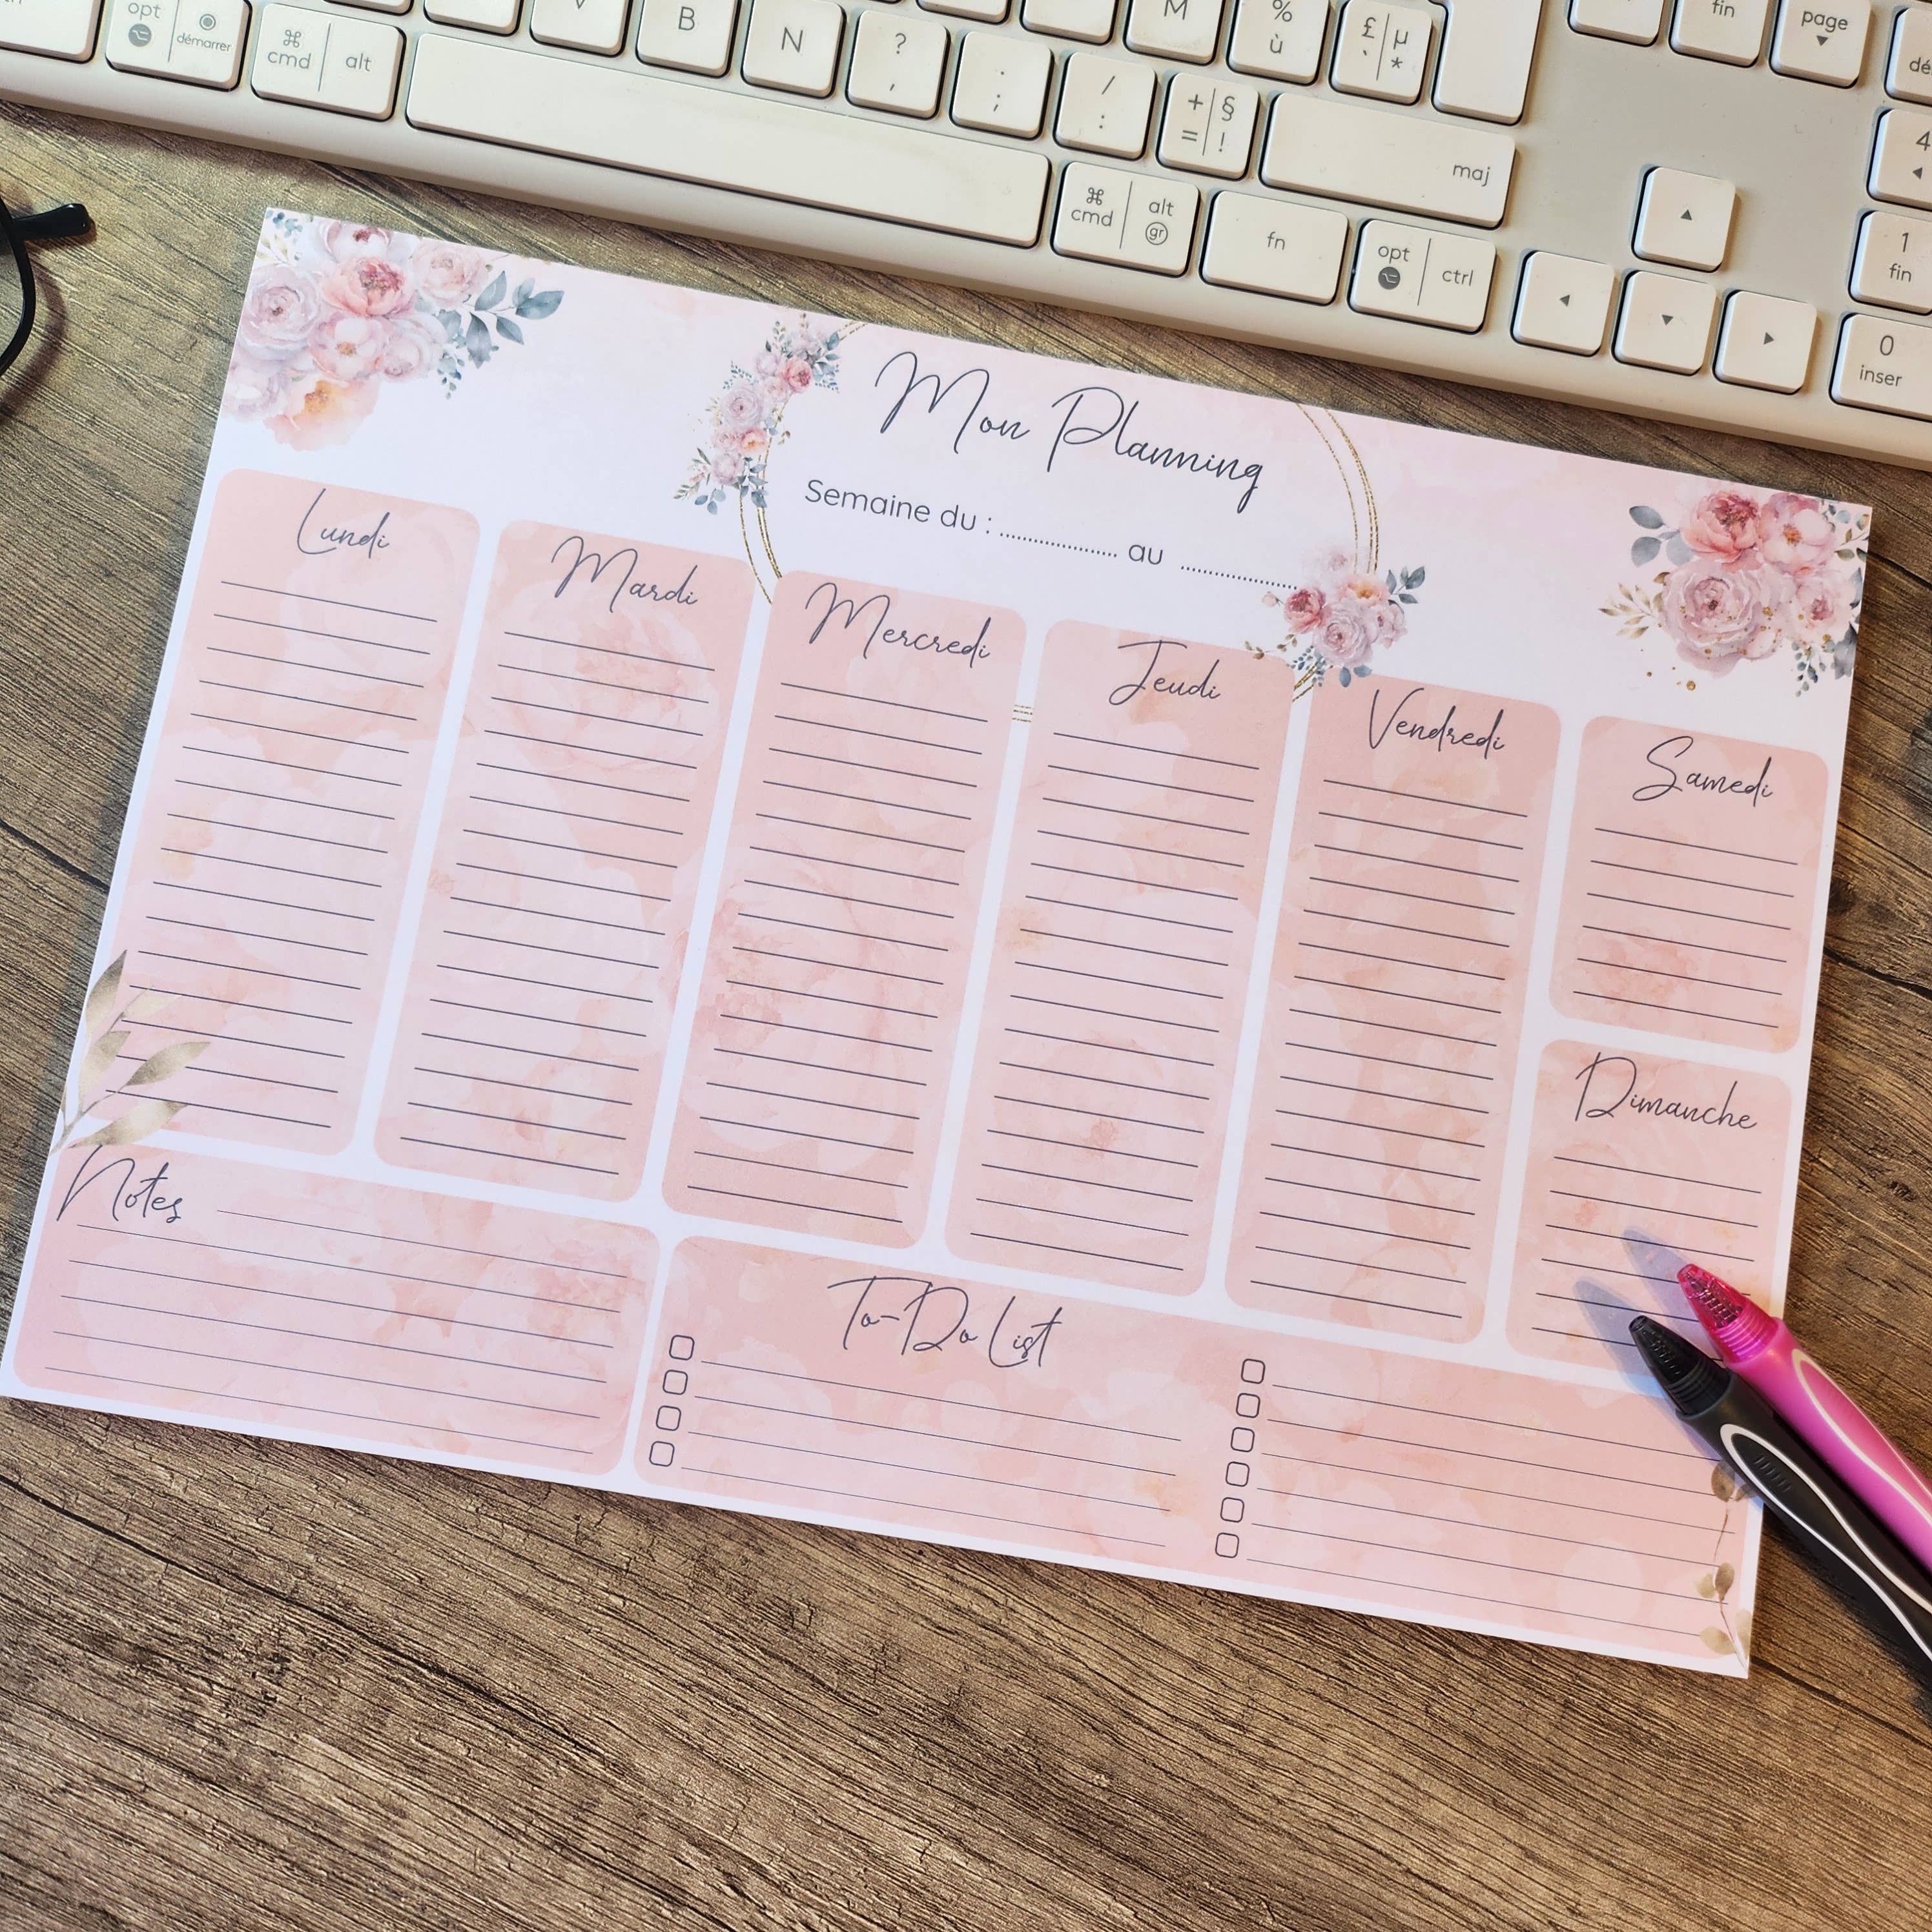 opt démarrer
cmd alt
V B N ? , . ; / : + = § ! M % ù £ ` µ *
maj
cmd alt gr
fn
opt ctrl
fin
page
4
1
fin
0
inser
Mon Planning
Semaine du : .................... au ....................
Lundi
Mardi
Mercredi
Jeudi
Vendredi
Samedi
Dimanche
Notes
To-Do List